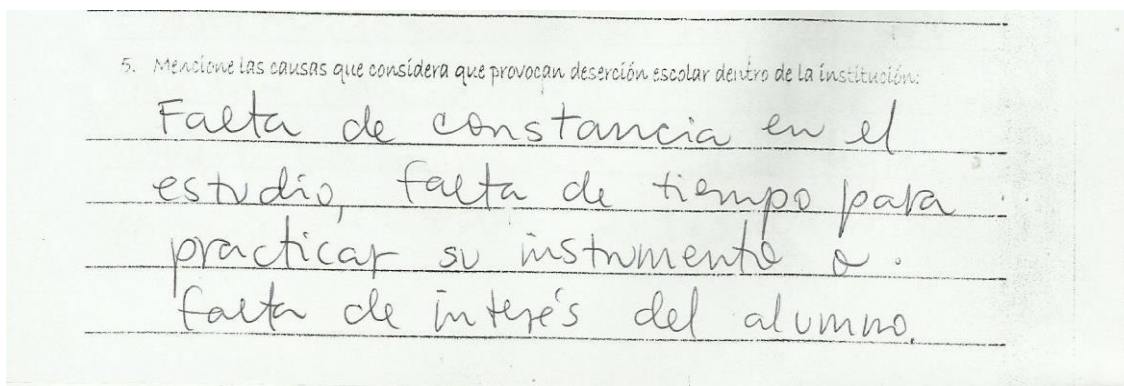 5. Mencione las causas que considera que provocan deserción escolar dentro de la institución:
Falta de constancia en el
estudio, falta de tiempo para
practicar su instrumento o
falta de interés del alumno.